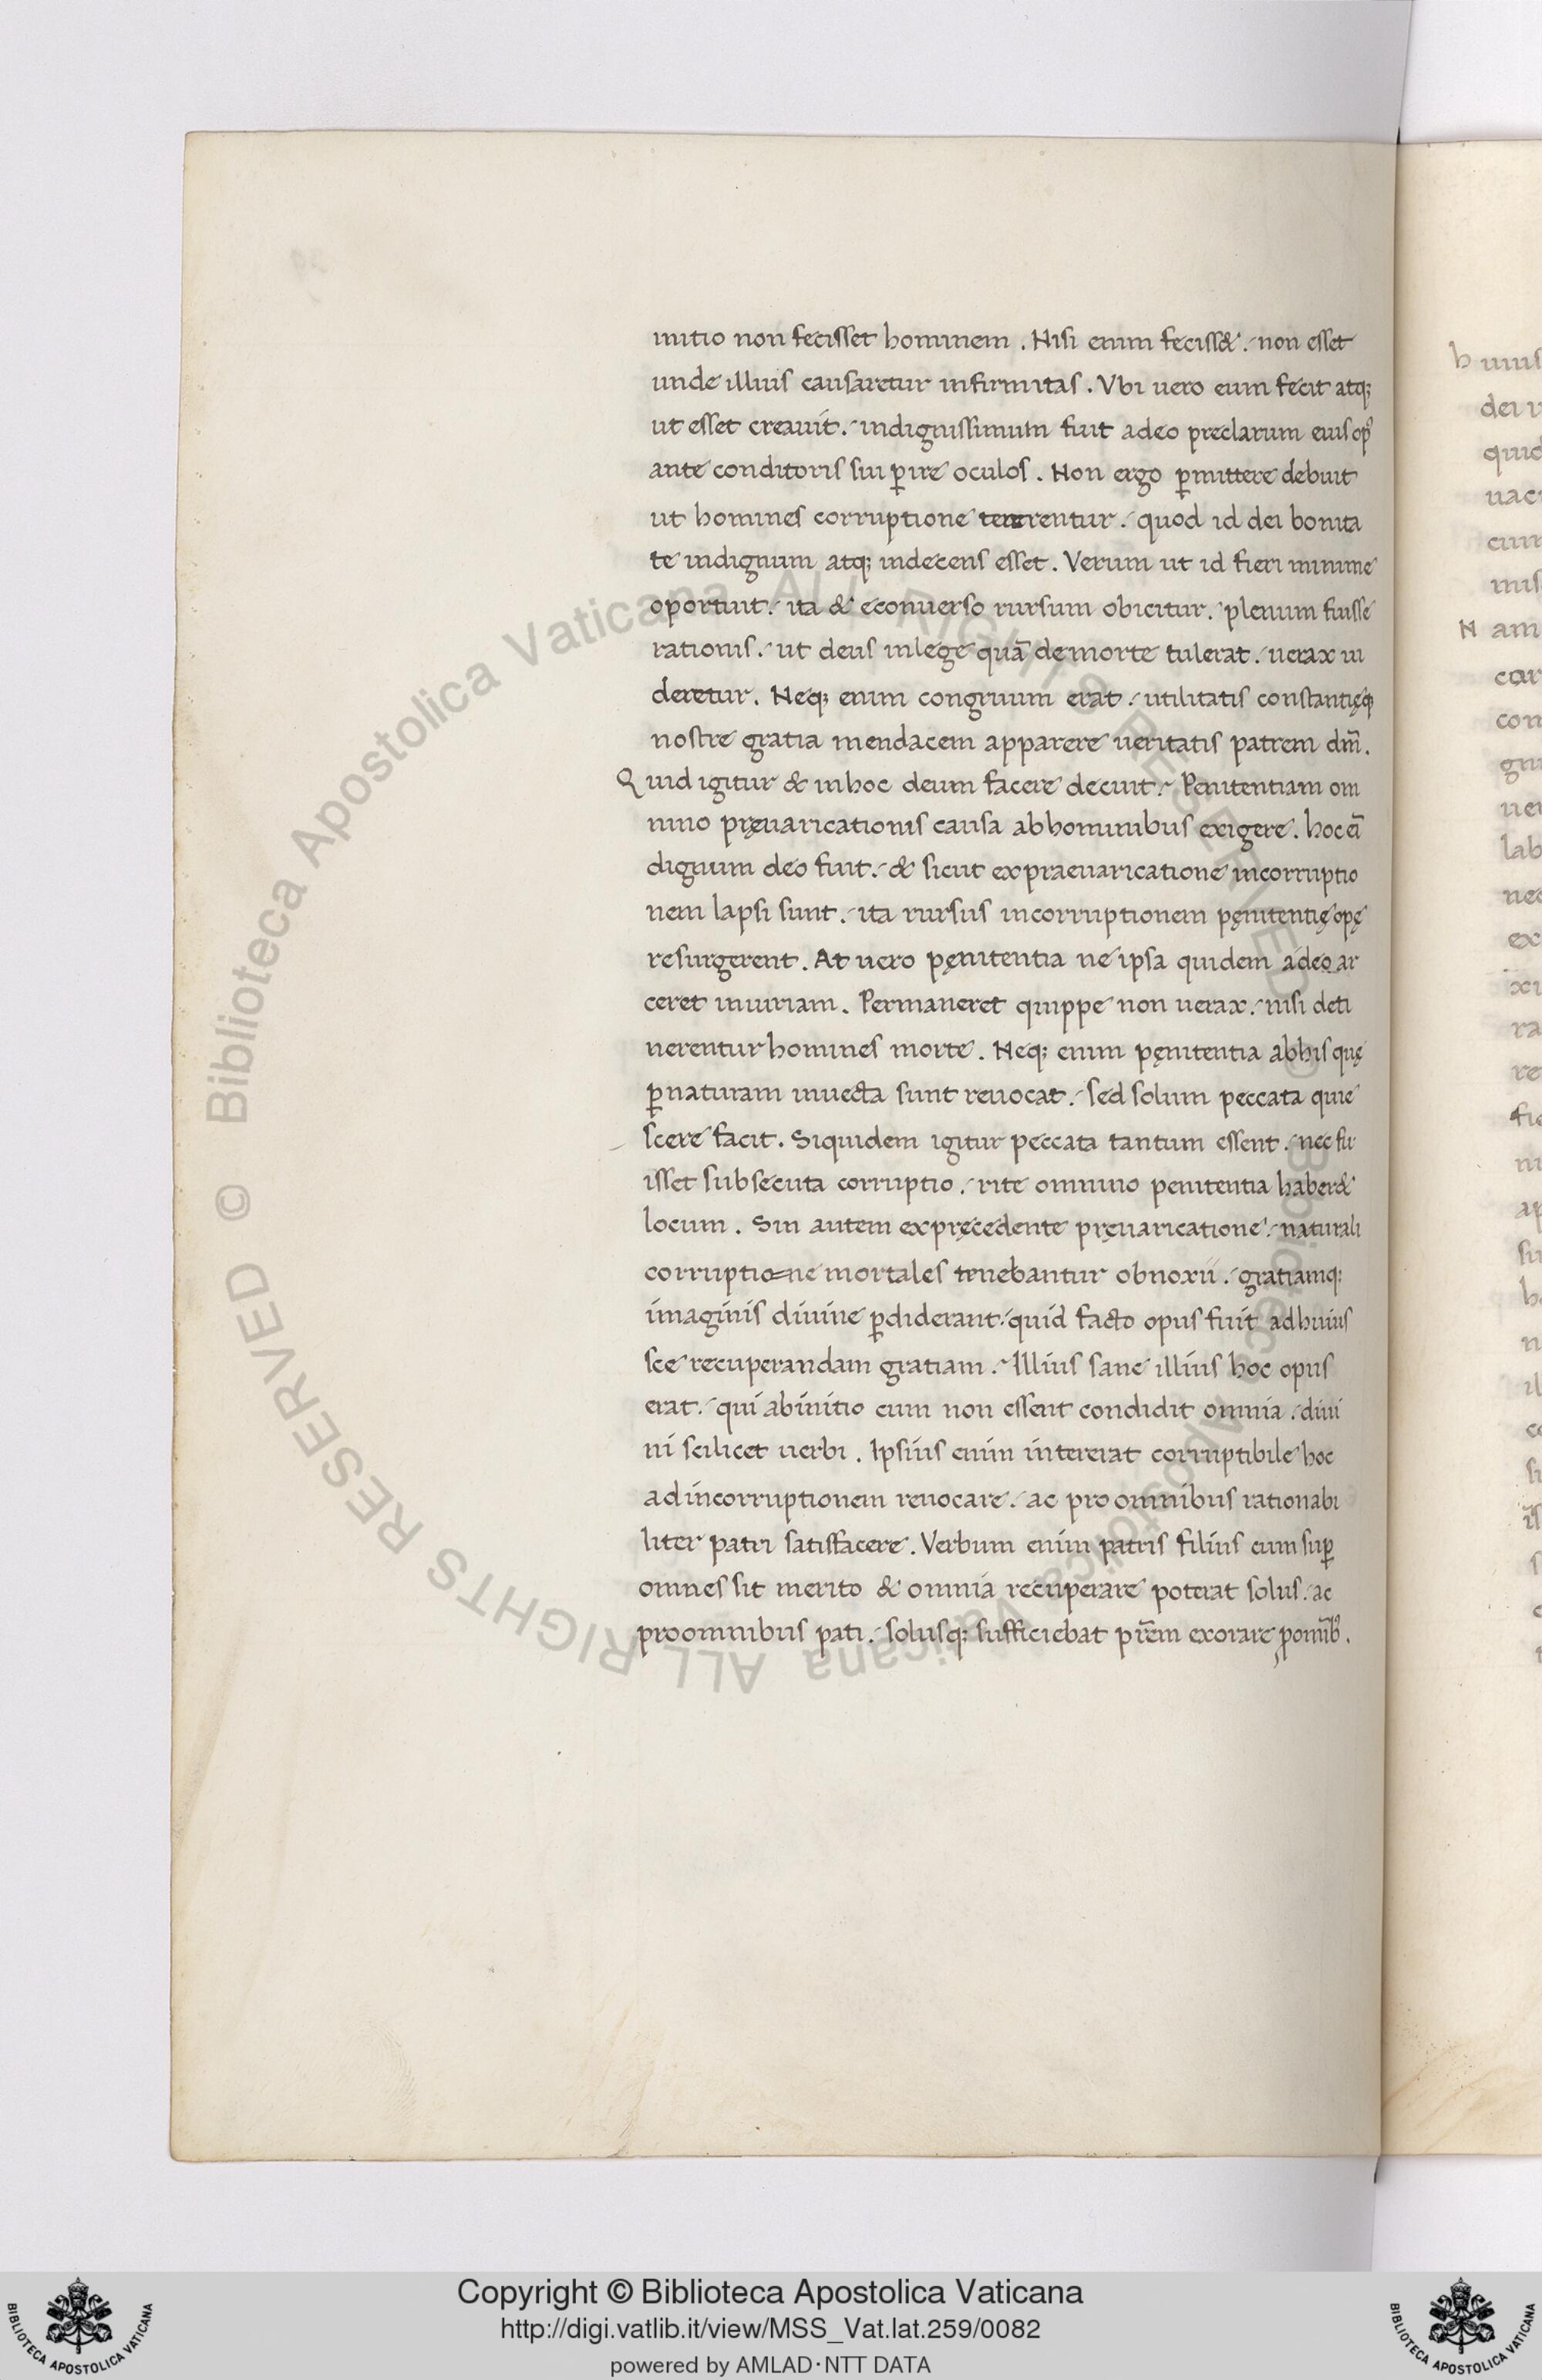 initio non fecisset hominem . Nisi enim feciss& . non esset
unde illius causaretur infirmitas . Vbi uero eum fecit atq;
ut esset creauit . indignissimum fuit adeo preclarum eius opꝰ
ante conditoris sui ꝑire oculos . Non ergo ꝑmittere debuit
ut homines corruptione rentur . quod id dei bonita
te indignum atq; indecens esset . Verum ut id fieri minime
oportuit . ita & econuerso rursum obicitur . plenum fuisse
rationis . ut deus inlege quā demorte tulerat . uerax ui
deretur . Neq; enim congruum erat . utilitatis constantięq;
nostre gratia mendacem apparere ueritatis patrem dm̄ .
Quid igitur & inhoc deum facere decuit . Penitentiam om
nino pręuaricationis causa abhominibus exigere . hoc eī
dignum deo fuit . & sicut expraeuaricatione incorruptio
nem lapsi sunt . ita rursus incorruptionem pęnitentię opę
resurgerent . At uero pęnitentia ne ipsa quidem adeo ar
ceret iniuriam . Permaneret quippe non uerax . nisi deti
nerentur homines morte . Neq; enim pęnitentia abhis quę
ꝑnaturam inuecta sunt reuocat . sed solum peccata quie
scere facit . Siquidem igitur peccata tantum essent . nec fu
isset subsecuta corruptio . rite omnino penitentia haber&
locum . Sin autem expręcedente pręuaricatione . naturali
corruptio=ne mortales tenebantur obnoxii . gratiamq;
imaginis diuine ꝑdiderant . quid facto opus fuit adhuius
sce recuperandam gratiam . Illius sane illius hoc opus
erat . qui abinitio cum non essent condidit omnia . diui
ni scilicet uerbi . Ipsius enim intererat corruptibile hoc
adincorruptionem reuocare . ac pro omnibus rationabi
liter patri satisfacere . Verbum enim patris filius cum suꝑ
omnes sit merito & omnia recuperare poterat solus . ac
proomnibus pati . solusq; sufficiebat pr̄em exorare pomībꝰ .
Copyright © Biblioteca Apostolica Vaticana
http://digi.vatlib.it/view/MSS_Vat.lat.259/0082
powered by AMLAD·NTT DATA